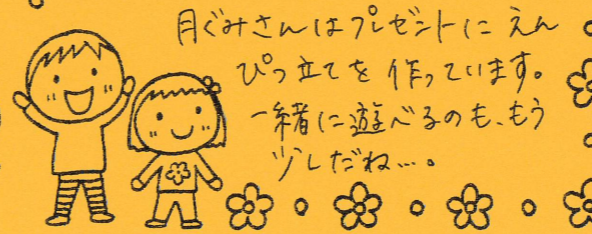 月ぐみさんはプレゼントに えん
ぴつ立てを 作っています。
一緒に遊べるのも、もう
少しだね…。